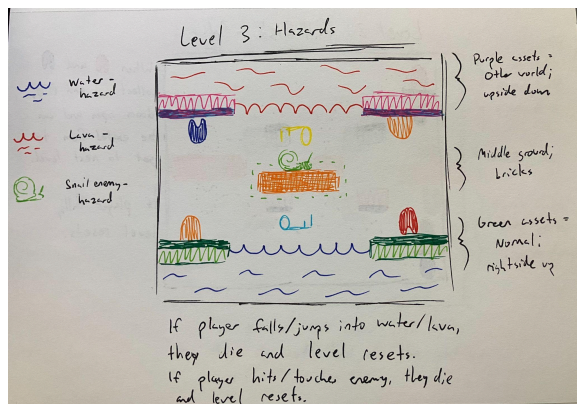 Level 3: Hazards
Water-
hazard
Lava-
hazard
Snail enemy-
hazard
Purple assets =
Other world;
upside down
Middle ground;
bricks
Green assets =
Normal;
rightside up
If player falls/jumps into water/lava,
they die and level resets.
If player hits/touches enemy, they die
and level resets.